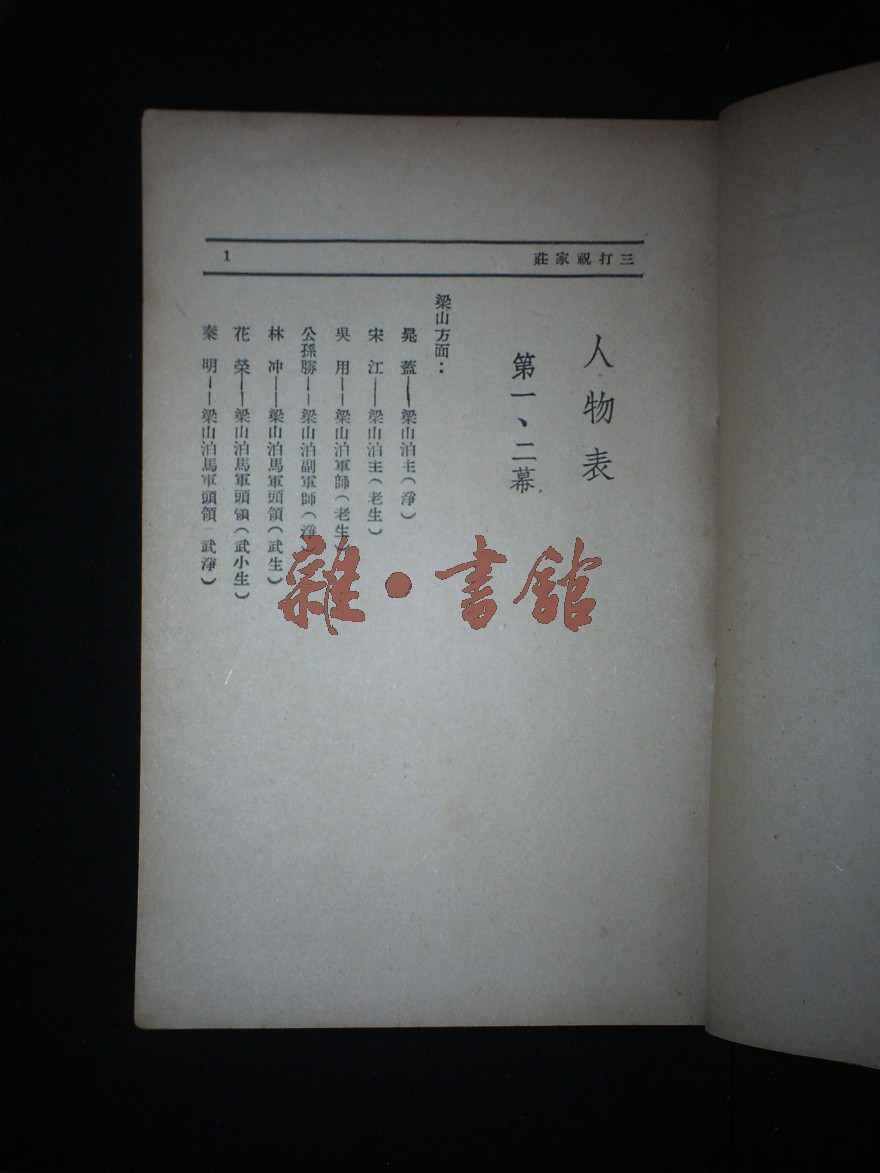 三打祝家莊
1
人物表
第一、二幕
梁山方面：
晁蓋——梁山泊主(淨)
宋江——梁山泊主(老生)
吳用——梁山泊軍師(老生)
公孫勝——梁山泊副軍師(淨)
林冲——梁山泊馬軍頭領(武生)
花榮——梁山泊馬軍頭領(武小生)
秦明——梁山泊馬軍頭領(武淨)
雜·書館